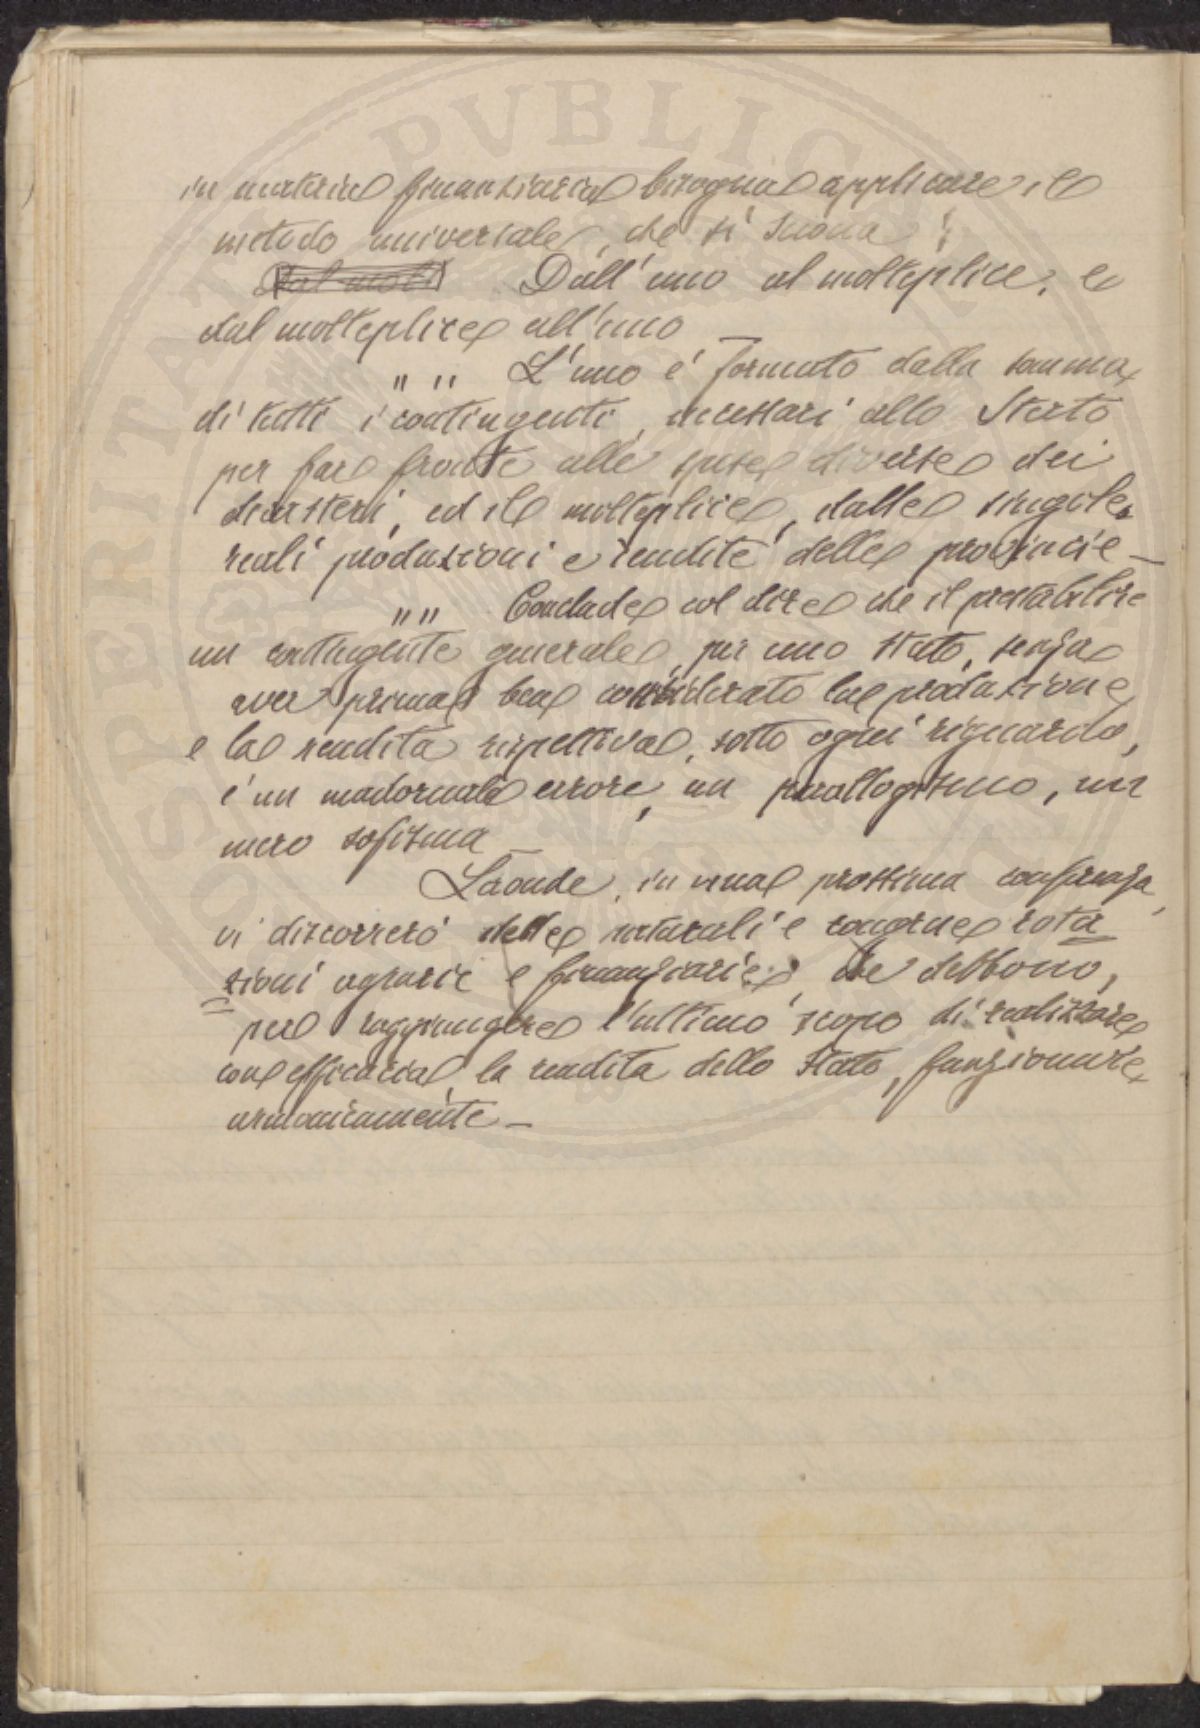 in materia finanziaria bisogna applicare il
metodo universale, che si suona:
Dal molt Dall'uno al molteplice, e
dal molteplice all'uno —
" " L'uno é formato dalla somma
di tutti i contingenti, necessari allo Stato
per far fronte alle spese diverse dei
dicasteri, ed il molteplice, dalle singole
reali produzioni e rendite delle provincie —
" " Conclude col dire che il prestabilire
un contingente generale, per uno stato, senza
aver prima ben considerato la produzione
e la rendita rispettiva, sotto ogni riguardo,
é un madornale errore, un parallogismo, un
mero sofisma —
Laonde, in una prossima conferenza,
vi discorreró delle naturali e congrue rota
zioni agrarie e finanziarie, che debbono,
per raggiungere l'ultimo scopo di realizzare
con efficacia, la rendita dello Stato, funzionare
armonicamente —
PVBLICA
PERITATI